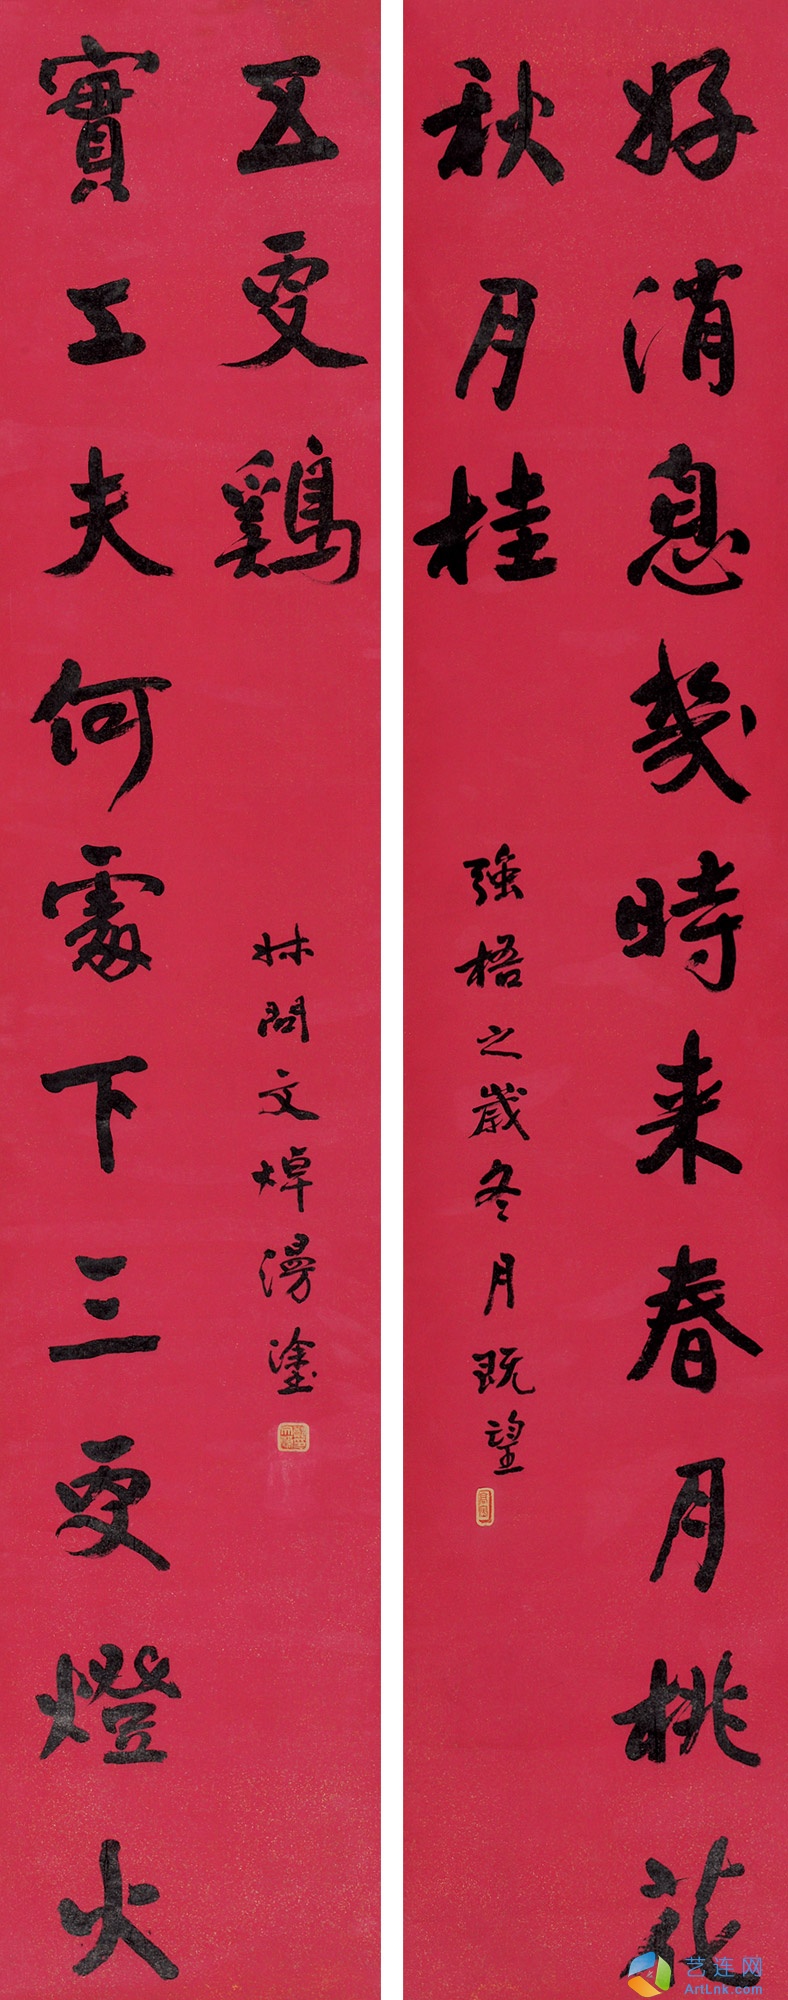 好消息幾時来春月桃花
秋月桂
強梧之歲冬月既望
實工夫何處下三更燈火
五更鷄
叔問文焯漫塗
艺连网
ArtLnk.com